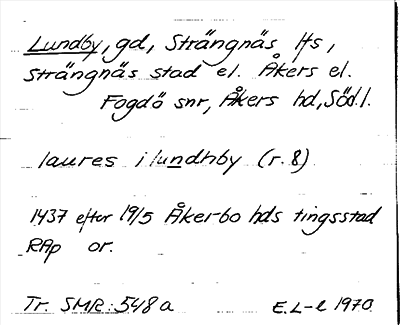 Lundby, gd, Strängnäs lfs,
Strängnäs stad el. Åkers el.
Fogdö snr, Åkers hd, Södl.
laures i lundhby (r. 8)
1437 efter 19/5 Åkerbo hds tingsstad
RAp or.
Tr. SMR: 548 a E.L-l 1970